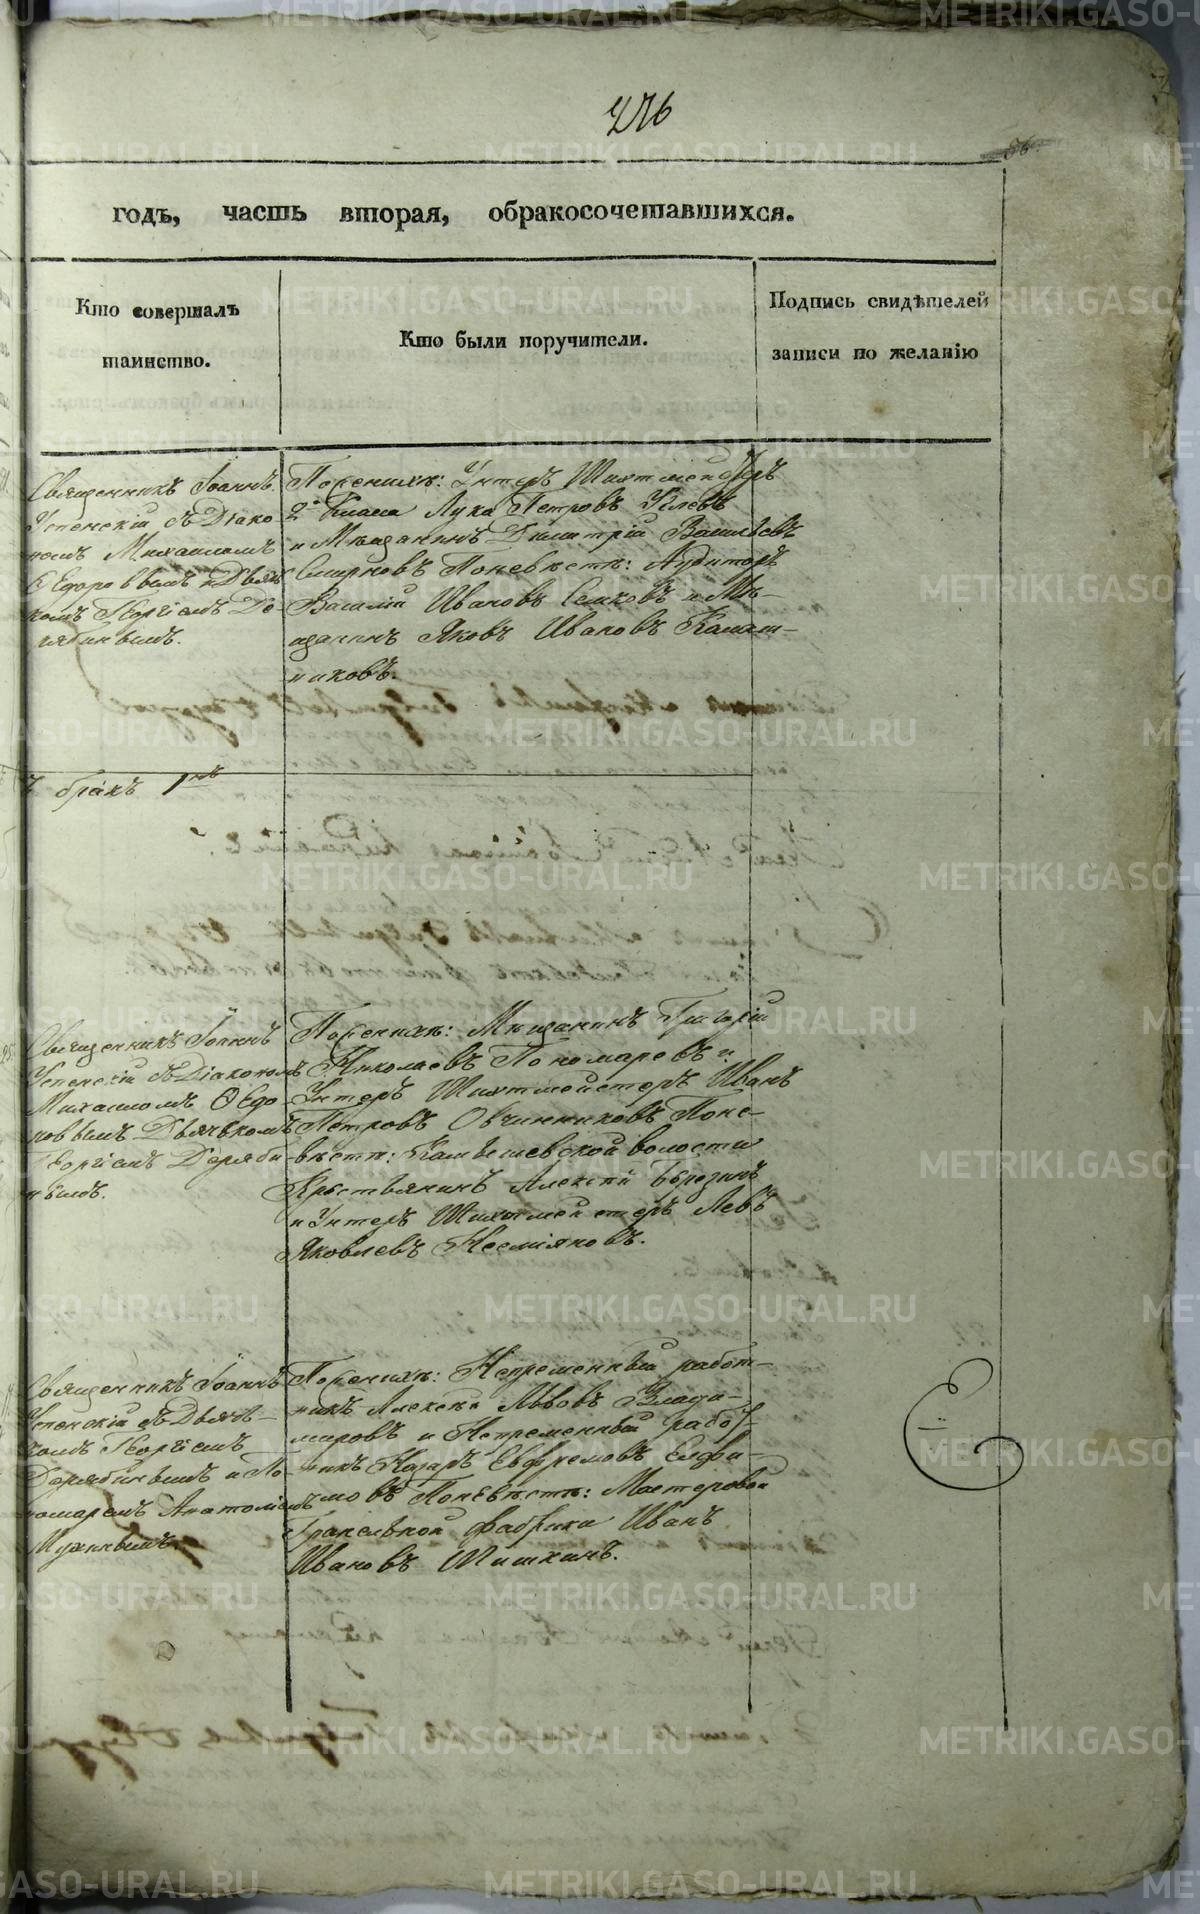 276
56
годъ, часть вторая, обракосочетавшихся.
Кто совершалъ
таинство.
Кто были поручители.
Подпись свидѣтелей
записи по желанію
Священникъ Іоаннъ
Успенскій съ Діако
номъ Михаиломъ
Ѳедоровымъ и Дьяч
комъ Георгіемъ Де
рябинымъ.
Поженихѣ: Унтеръ Шихтмейстеръ
2 Класа Лука Петровъ
и Мѣщанинъ Димитрій Васильевъ
Смирновъ Поневѣстѣ: Аудиторъ
Василій Ивановъ и Мѣ-
щанинъ Яковъ Ивановъ Калаш-
никовъ.
бракъ 1
Священникъ Іоаннъ
Успенскій съ Діакономъ
Михаиломъ Ѳедо
ровымъ Дьячкомъ
Георгіемъ Деряби
нымъ.
Поженихѣ: Мѣщанинъ Григорій
Николаевъ Пономаревъ и
Унтеръ Шихтмейстеръ Иванъ
Петровъ Овчинниковъ Поне-
вѣстѣ: Камышевской волости
Крестьянинъ Алексѣй
и Унтеръ Шихтмейстеръ Левъ
Яковлевъ
Священникъ Іоаннъ
Успенскій съ Дьяч-
комъ Георгіемъ
Дерябинымъ и По-
номаремъ Анатоліемъ
Мухинымъ.
Поженихѣ: Непременный работ-
никъ Алексѣй Львовъ Влади-
мировъ и Непременный работ-
никъ Назаръ Евфремовъ
Поневѣстѣ: Мастеровой
Гранильной фабрики Иванъ
Ивановъ Шишкинъ.
METRIKI.GASO-URAL.RU